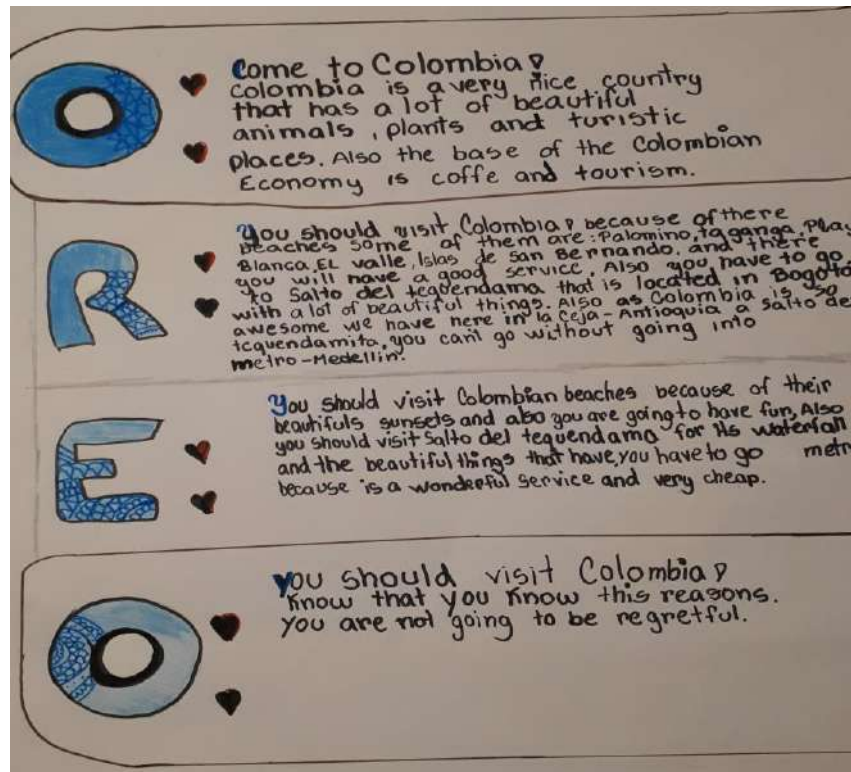 O
Come to Colombia!
Colombia is a very nice country
that has a lot of beautiful
animals, plants and turistic
places. Also the base of the Colombian
Economy is coffe and tourism.
R
You should visit Colombia! because of there
beaches some of them are: Palomino, taganga, Play
Blanca, EL valle, Islas de san Bernando. and there
you will have a good service. Also you have to go
to Salto del tequendama that is located in Bogotá
with a lot of beautiful things. Also as Colombia is so
awesome we have here in la ceja-Antioquia a salto de
tequendamita, you can't go without going into
metro-Medellin.
E
You should visit Colombian beaches because of their
beautifuls sunsets and also you are going to have fun, Also
you should visit Salto del tequendama for its waterfall
and the beautiful things that have, you have to go metr
because is a wonderful service and very cheap.
O
You should visit Colombia!
Know that you know this reasons.
You are not going to be regretful.